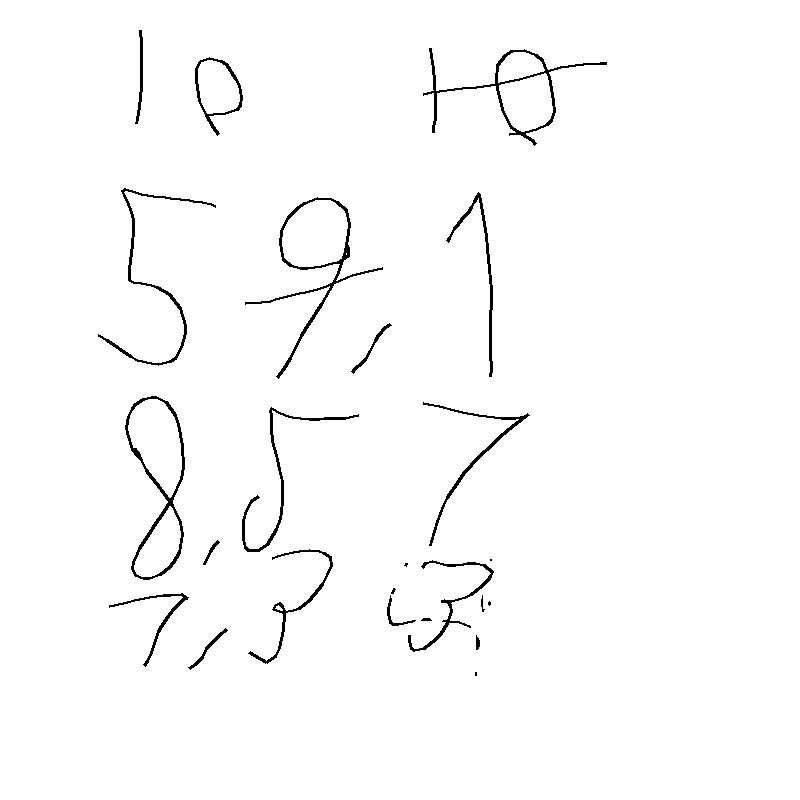 10 10
5 9,1
8,5 7
7,3 3